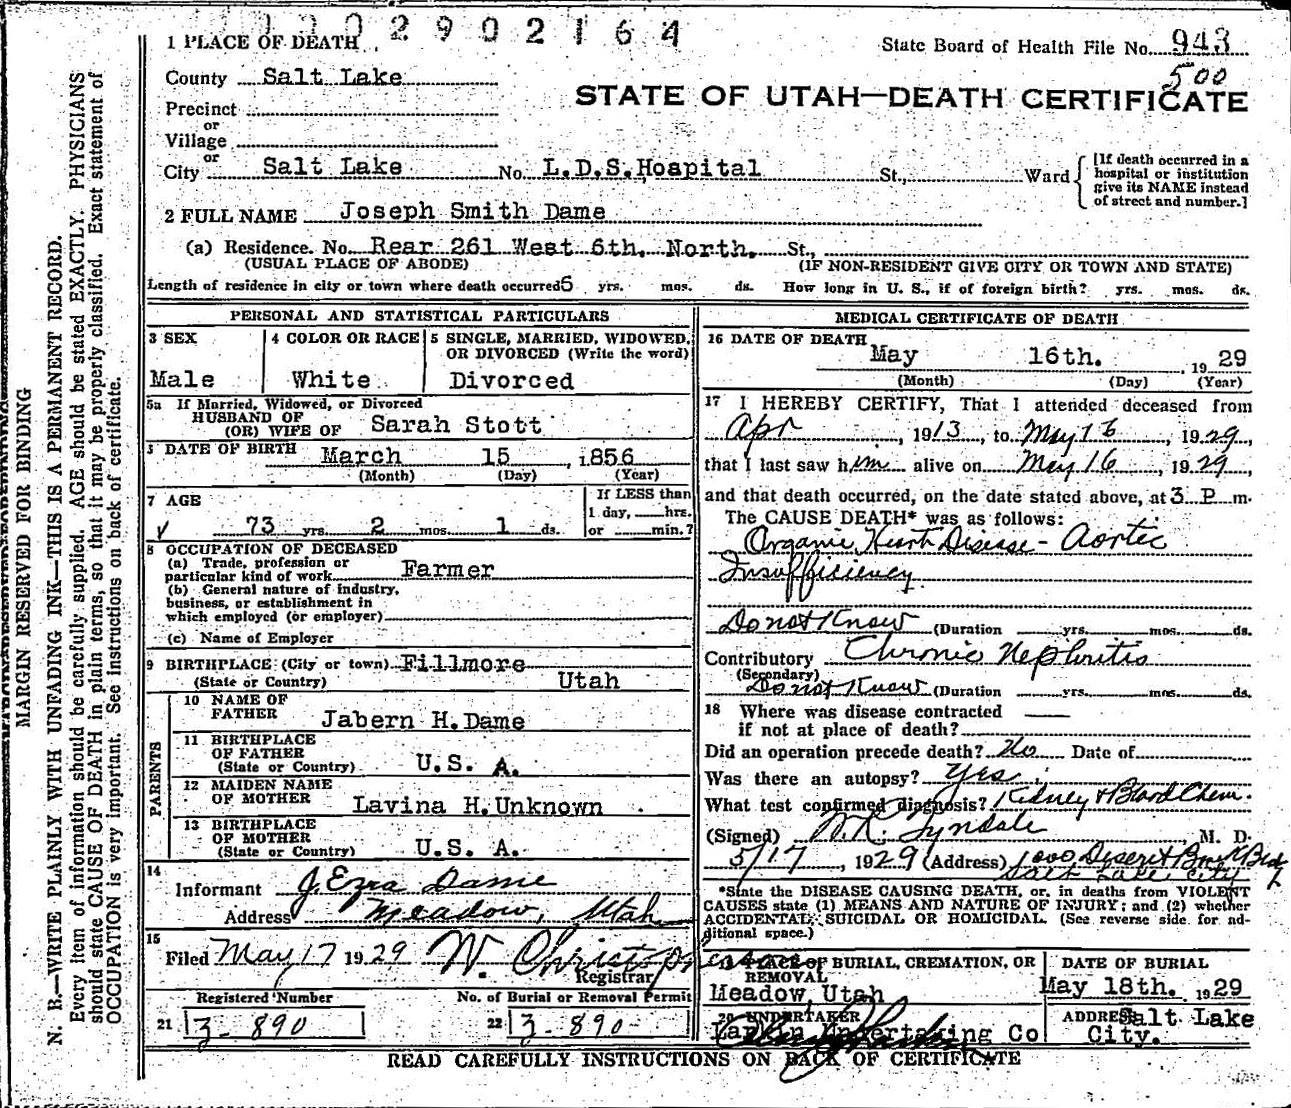 2902164
State Board of Health File No. 943
500
1 PLACE OF DEATH
County Salt Lake
STATE OF UTAH—DEATH CERTIFICATE
Precinct
or
Village
or
City Salt Lake No. L.D.S. Hospital St., Ward
[If death occurred in a
hospital or institution
give its NAME instead
of street and number.]
2 FULL NAME Joseph Smith Dame
(a) Residence. No. Rear 261 West 6th. North. St.,
(USUAL PLACE OF ABODE) (IF NON-RESIDENT GIVE CITY OR TOWN AND STATE)
Length of residence in city or town where death occurred 5 yrs. mos. ds. How long in U. S., if of foreign birth? yrs. mos. ds.
PERSONAL AND STATISTICAL PARTICULARS
3 SEX
Male
4 COLOR OR RACE
White
5 SINGLE, MARRIED, WIDOWED,
OR DIVORCED (Write the word)
Divorced
5a If Married, Widowed, or Divorced
HUSBAND OF
(OR) WIFE OF Sarah Stott
DATE OF BIRTH March 15, 1856
(Month) (Day) (Year)
7 AGE
73 yrs. 2 mos. 1 ds.
If LESS than
1 day, hrs.
or min.?
8 OCCUPATION OF DECEASED
(a) Trade, profession or
particular kind of work Farmer
(b) General nature of industry,
business, or establishment in
which employed (or employer)
(c) Name of Employer
9 BIRTHPLACE (City or town) Fillmore
(State or Country) Utah
PARENTS
10 NAME OF
FATHER Jabern H. Dame
11 BIRTHPLACE
OF FATHER
(State or Country) U.S. A.
12 MAIDEN NAME
OF MOTHER Lavina H. Unknown
13 BIRTHPLACE
OF MOTHER
(State or Country) U.S. A.
14
Informant J. Ezra Dame
Address Meadow, Utah
15
Filed May 17 1929 W. Christopherson
Registrar
Registered Number
21 3-890
No. of Burial or Removal Permit
22 3-890
MEDICAL CERTIFICATE OF DEATH
16 DATE OF DEATH
May 16th. , 1929
(Month) (Day) (Year)
17 I HEREBY CERTIFY, That I attended deceased from
Apr , 1913, to May 16, 1929,
that I last saw him alive on May 16, 1929,
and that death occurred, on the date stated above, at 3 P m.
The CAUSE DEATH* was as follows:
Organic Heart Disease - Aortic
Insufficiency
Do not Know (Duration yrs. mos. ds.
Contributory Chronic Nephritis
(Secondary)
Do not Know (Duration yrs. mos. ds.
18 Where was disease contracted
if not at place of death?
Did an operation precede death? No Date of
Was there an autopsy? Yes
What test confirmed diagnosis? Kidney & Blood Chem.
(Signed) W.R. Tyndale M. D.
5/17, 1929 (Address) 1000 Deseret Bank Bldg
Salt Lake City
*State the DISEASE CAUSING DEATH, or, in deaths from VIOLENT
CAUSES state (1) MEANS AND NATURE OF INJURY; and (2) whether
ACCIDENTAL, SUICIDAL OR HOMICIDAL. (See reverse side for ad-
ditional space.)
19 PLACE OF BURIAL, CREMATION, OR
REMOVAL
Meadow, Utah
DATE OF BURIAL
May 18th. , 1929
20 UNDERTAKER
Larkin Undertaking Co
ADDRESS Salt Lake
City.
READ CAREFULLY INSTRUCTIONS ON BACK OF CERTIFICATE
MARGIN RESERVED FOR BINDING
N. B.—WRITE PLAINLY WITH UNFADING INK—THIS IS A PERMANENT RECORD.
Every item of information should be carefully supplied. AGE should be stated EXACTLY. PHYSICIANS
should state CAUSE OF DEATH in plain terms, so that it may be properly classified. Exact statement of
OCCUPATION is very important. See instructions on back of certificate.